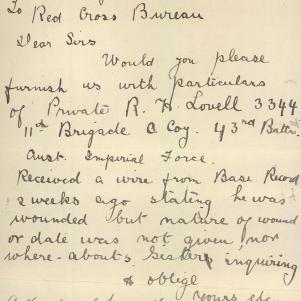 To Red Cross Bureau
Dear Sirs
Would you please
furnish us with particulars
of Private R. H. Lovell 3344
11th Brigade C Coy. 43rd Battn.
Aust. Imperial Force.
Received a wire from Base Record
2 weeks ago stating he was
wounded but nature of wound
or date was not given nor
where-abouts. Sister inquiring
& oblige
Yours